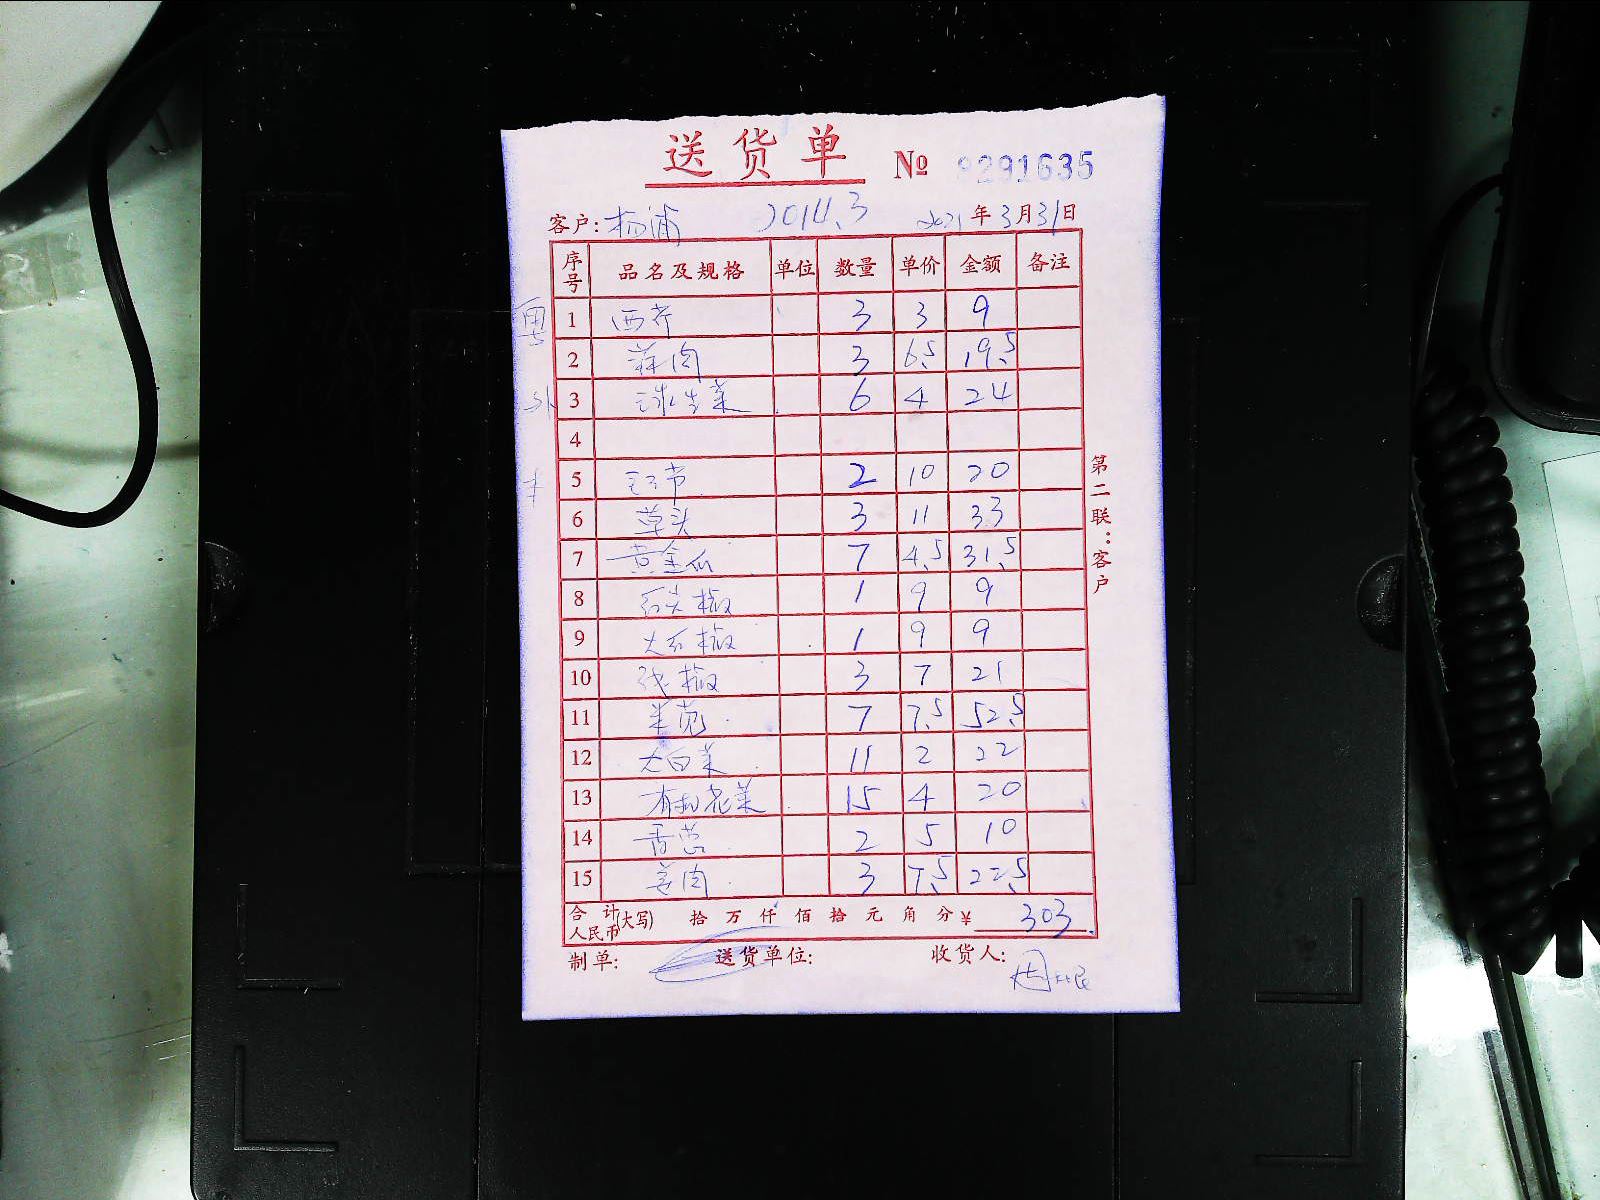 送货单 № 9291635
客户: 杨浦 2014.3 2021年3月31日
序号 品名及规格 单位 数量 单价 金额 备注
1 西芹 3 3 9
2 蒜肉 3 6.5 19.5
3 球生菜 6 4 24
4
5 2 10 20
6 草头 3 11 33
7 黄金瓜 7 4.5 31.5
8 红尖椒 1 9 9
9 大红椒 1 9 9
10 线椒 3 7 21
11 米苋 7 7.5 52.5
12 大白菜 11 2 22
13 有机花菜 15 4 20
14 香芹 2 5 10
15 姜肉 3 7.5 22.5
合计人民币(大写) 拾万仟佰拾元角分¥ 303
制单: 送货单位: 收货人:
第二联:客户